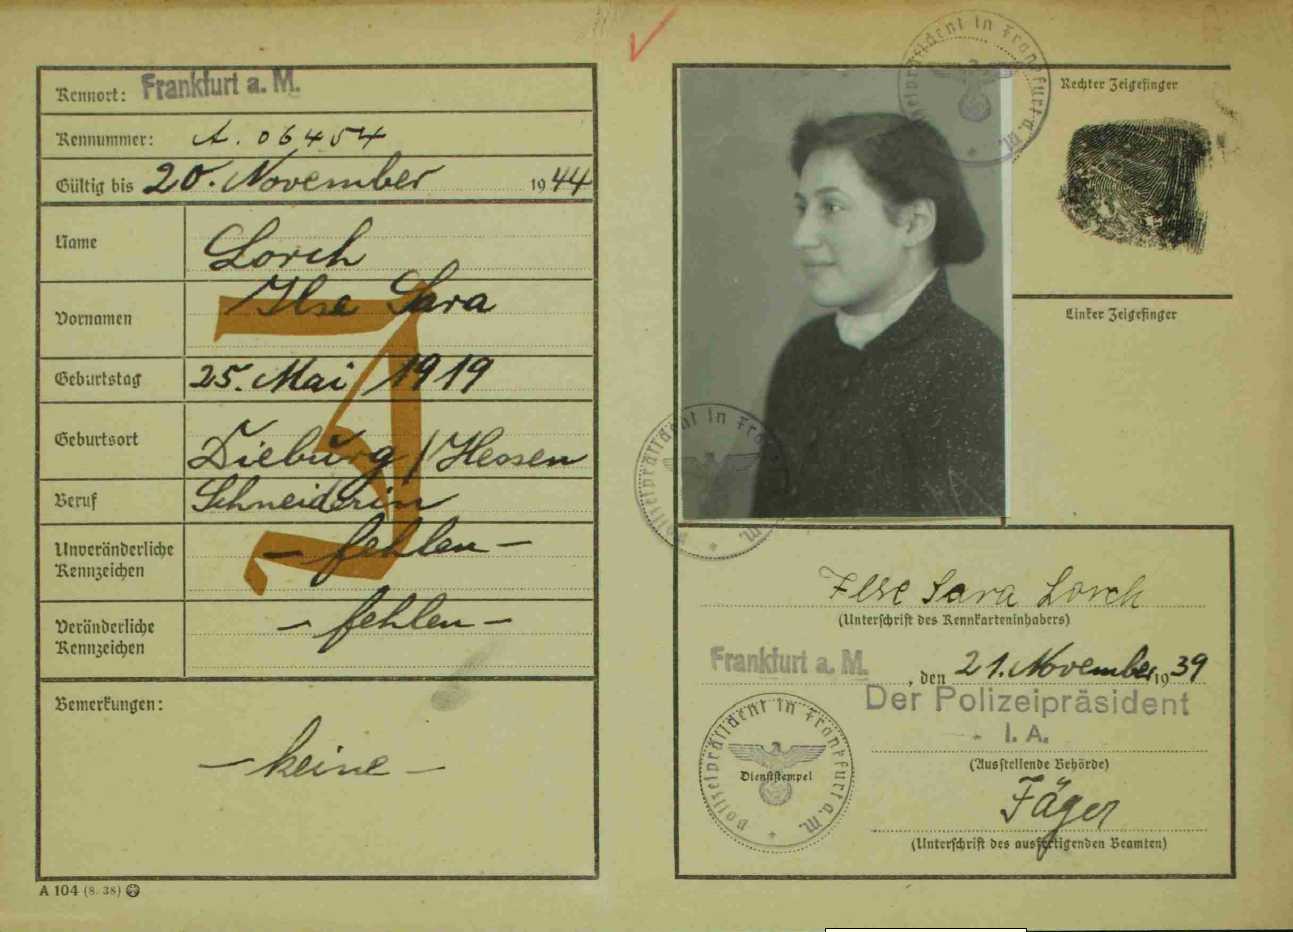 Kennort: Frankfurt a. M.
Kennummer: A. 06454
Gültig bis 20. November 1944
Name Lorch
Vornamen Ilse Sara
Geburtstag 25. Mai 1919
Geburtsort Dieburg / Hessen
Beruf Schneiderin
Unveränderliche Kennzeichen – fehlen –
Veränderliche Kennzeichen – fehlen –
Bemerkungen:
– keine –
J
A 104 (8. 38)
Polizeipräsident in Frankfurt a. M.
Rechter Zeigefinger
Linker Zeigefinger
Polizeipräsident in Frankfurt a. M.
Ilse Sara Lorch
(Unterschrift des Kennkarteninhabers)
Frankfurt a. M., den 21. November 1939
Der Polizeipräsident
I. A.
(Ausstellende Behörde)
Jäger
(Unterschrift des ausfertigenden Beamten)
Polizeipräsident in Frankfurt a. M.
Dienststempel